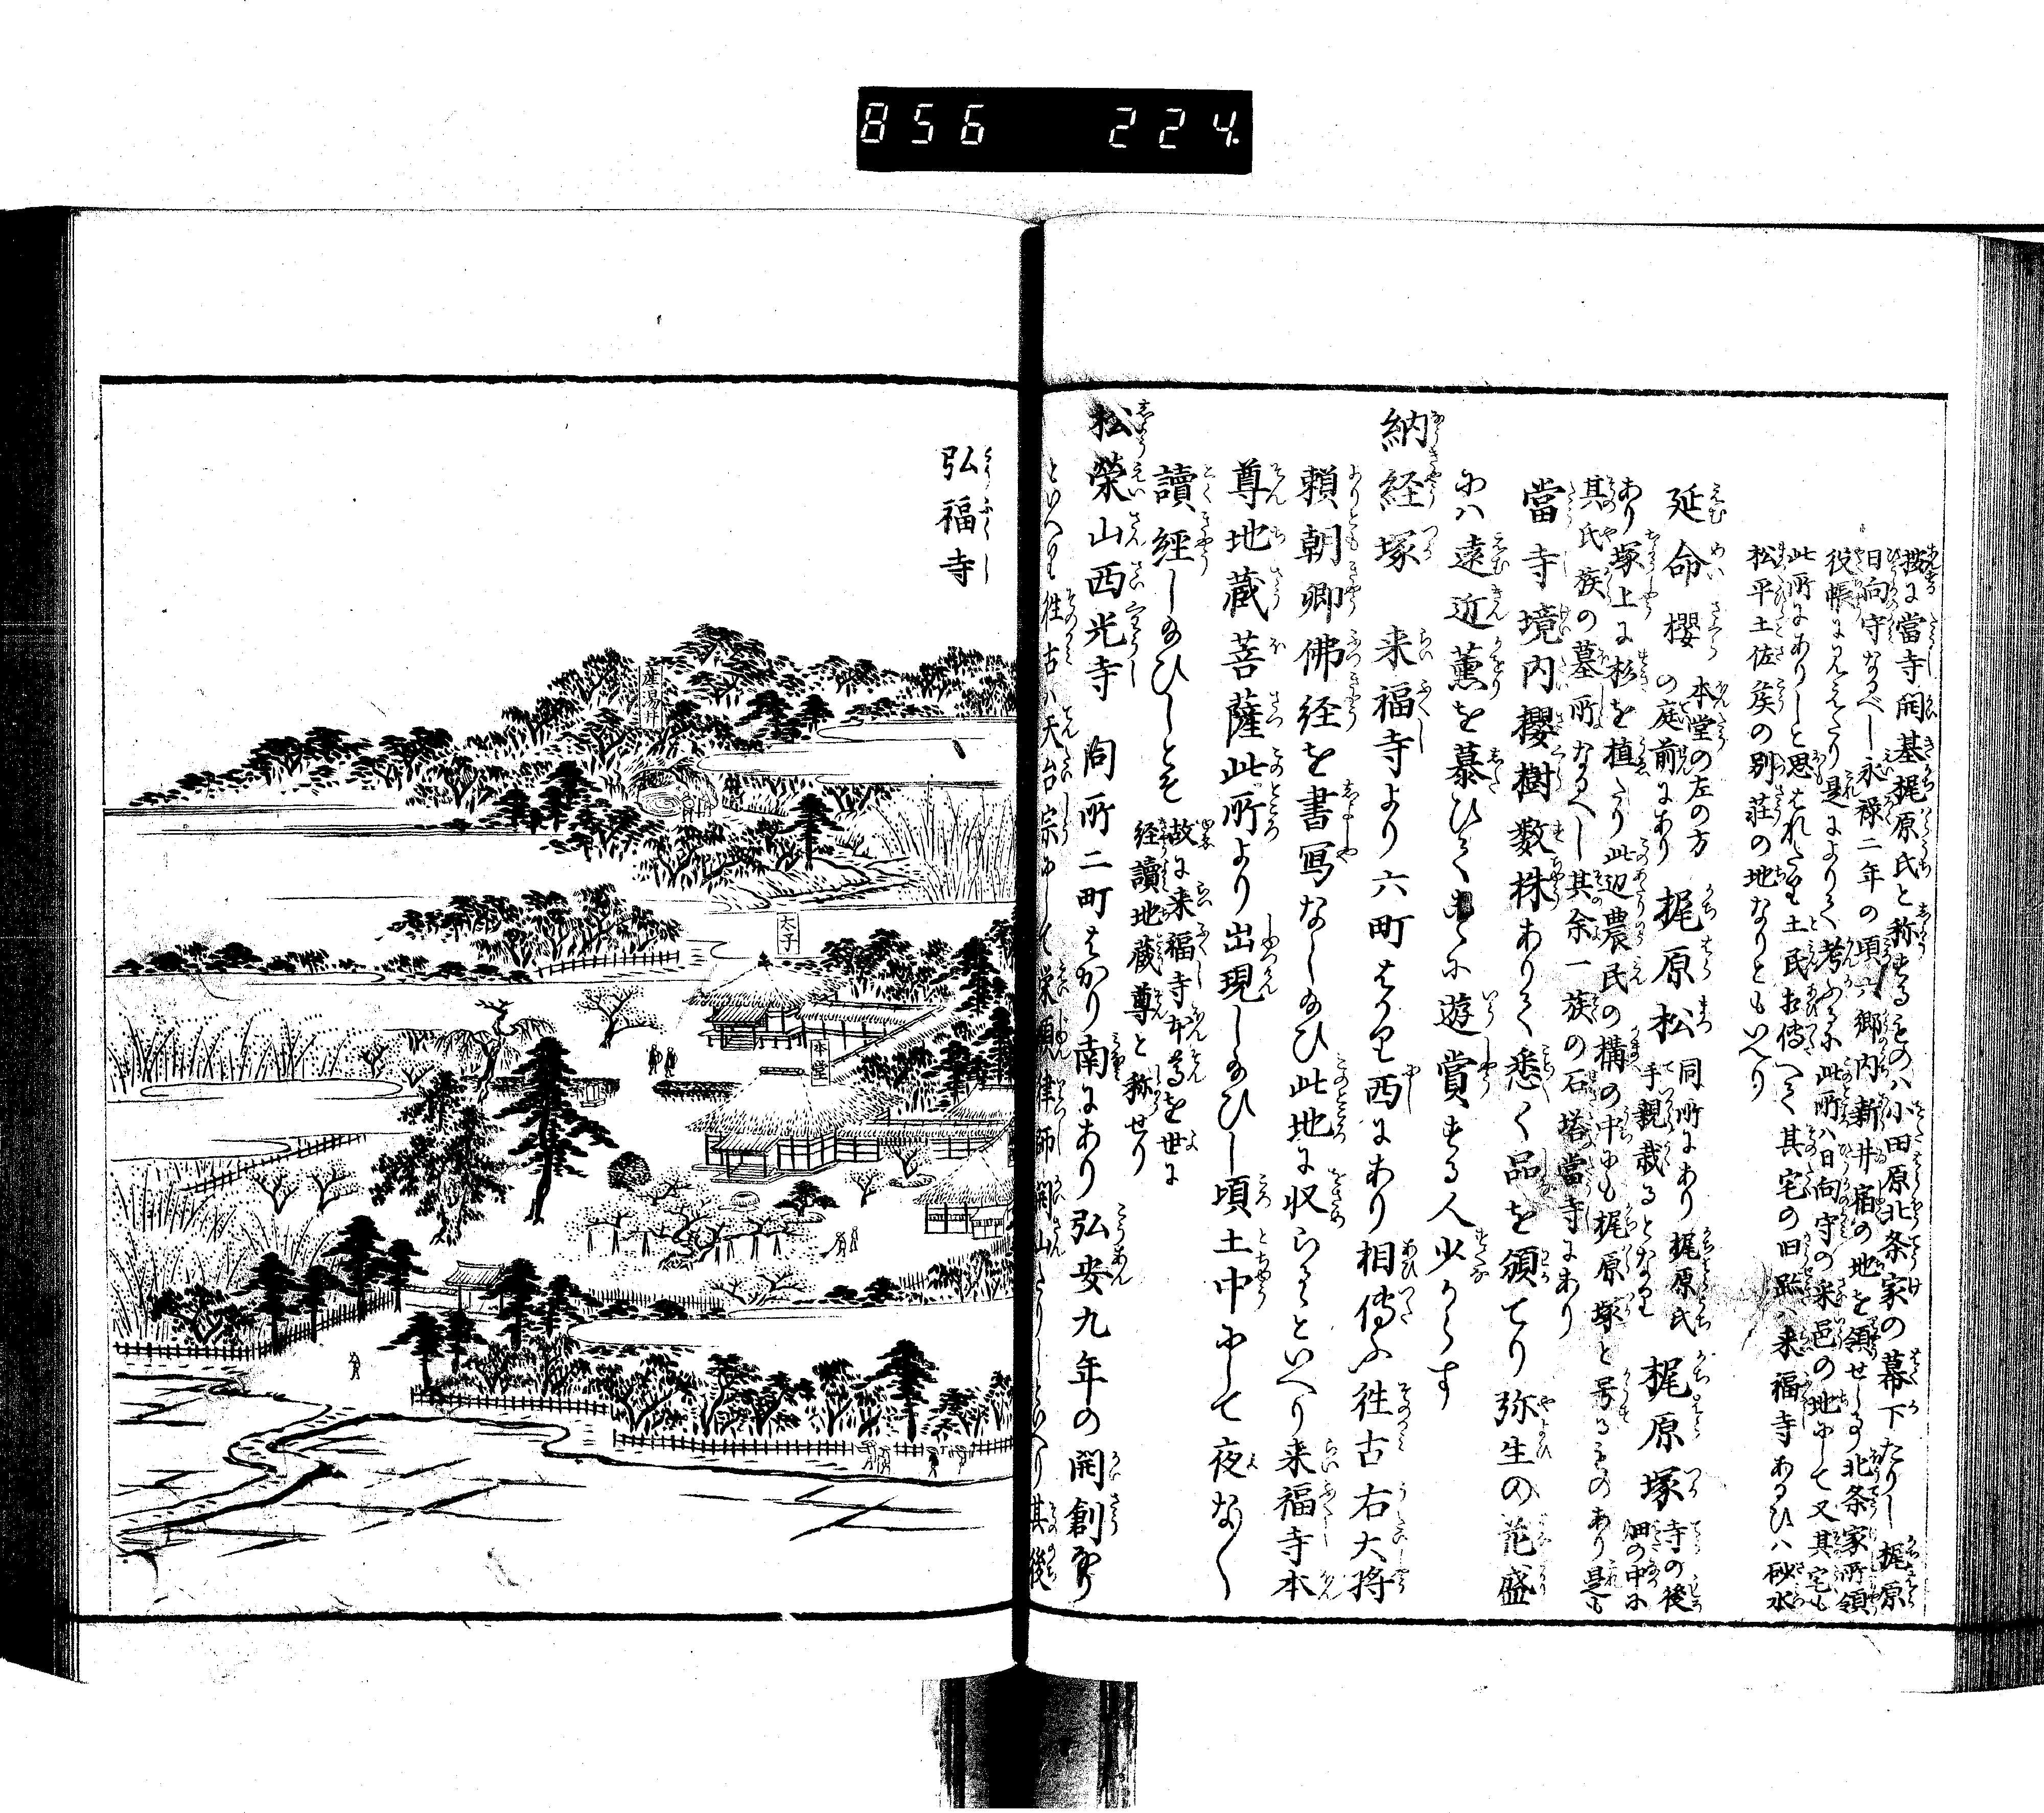 856 224
按に當寺開基梶原氏と称するものハ小田原北条家の幕下たりし梶原
日向守なるべし永禄二年の頃六郷内新井宿の地を領せしる北条家所領
役帳に見えたり是によりて考ふるに此所ハ日向守の采邑の地にして又其宅も
此所にありしと思はれたり土民相傳へて其宅の旧趾ハ来福寺あるひハ秋水
松平土佐矦の別荘の地なりともいへり
延命櫻 本堂の左の方の庭前にあり 梶原松 同所にあり梶原氏手親栽るとなり 梶原塚 寺の後畑の中に
あり塚上に杉を植たり此辺農民の構の中にも梶原塚と号るものあり是も
其氏族の墓所なるへし其余一族の石塔當寺にあり
當寺境内櫻樹数株ありて悉く品を領てり弥生の花盛
にハ遠近薫を慕ひてこゝに遊賞する人少からす
納経塚 来福寺より六町はかり西にあり相傳ふ徃古右大将
頼朝卿佛経を書冩なし給ひ此地に収らるといへり来福寺本
尊地蔵菩薩此所より出現し給ひし頃土中にして夜な〱
讀經し給ひしとそ 故に来福寺本尊を世に
経讀地蔵尊と称せり
松榮山西光寺 同所二町はかり南にあり弘安九年の開創なり
といへり徃古ハ天台宗にして栄順律師開山たりしといへり其後
弘福寺
産湯井
太子
本堂